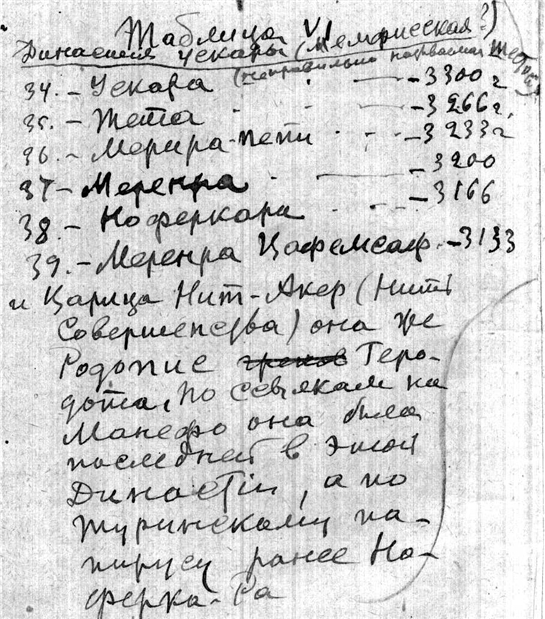 Таблица VI
Династия Усекары (Мемфисская?)
(неправильно названная Тетов)
34. – Усекара – 3300 г
35. – Тета – 3266 г.
36. – Мерира-пепи – 3233 г
37 – Меренра – 3200
38. – Ноферкара – 3166
39. – Меренра Цафемсаф. – 3133
и Царица Нит-Акер (Нит
Совершенства) она же
Родопис греков Геро-
дота, по
Манефо она была
последней в этой
Династии, а по
Туринскому па-
пирусу ранее Но-
ферка-Ра